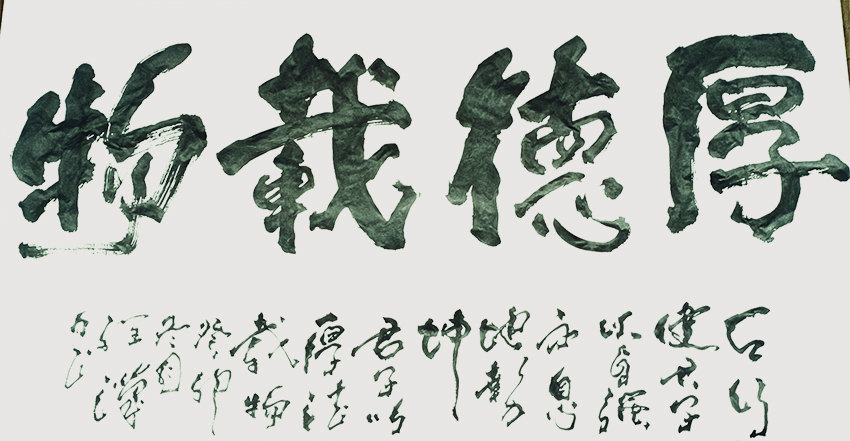 厚德載物
天行
健君子
以自強
不息
地勢
坤
君子以
厚德
載物
癸卯
冬月